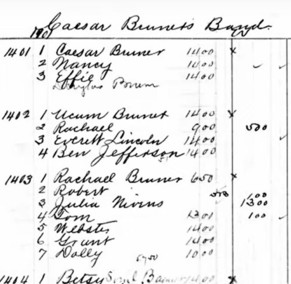 Caesar Bruner's Band
1401 1 Caesar Bruner 1400 x
2 Nancy 1400 ✓ ✓
3 Effie 1400
1402 1 Ucum Bruner 1400 x
2 Rachael 900 500
3 Everett Lincoln 1400
4 Ben Jefferson 1400
1403 1 Rachael Bruner 650 x
2 Robert
3 Julia Nivens 1300
4 Tom 1300 100 ✓
5 Webster 1400
6 Grant 1400
7 Dolly 1000
1404 1 Betsy 1400 x